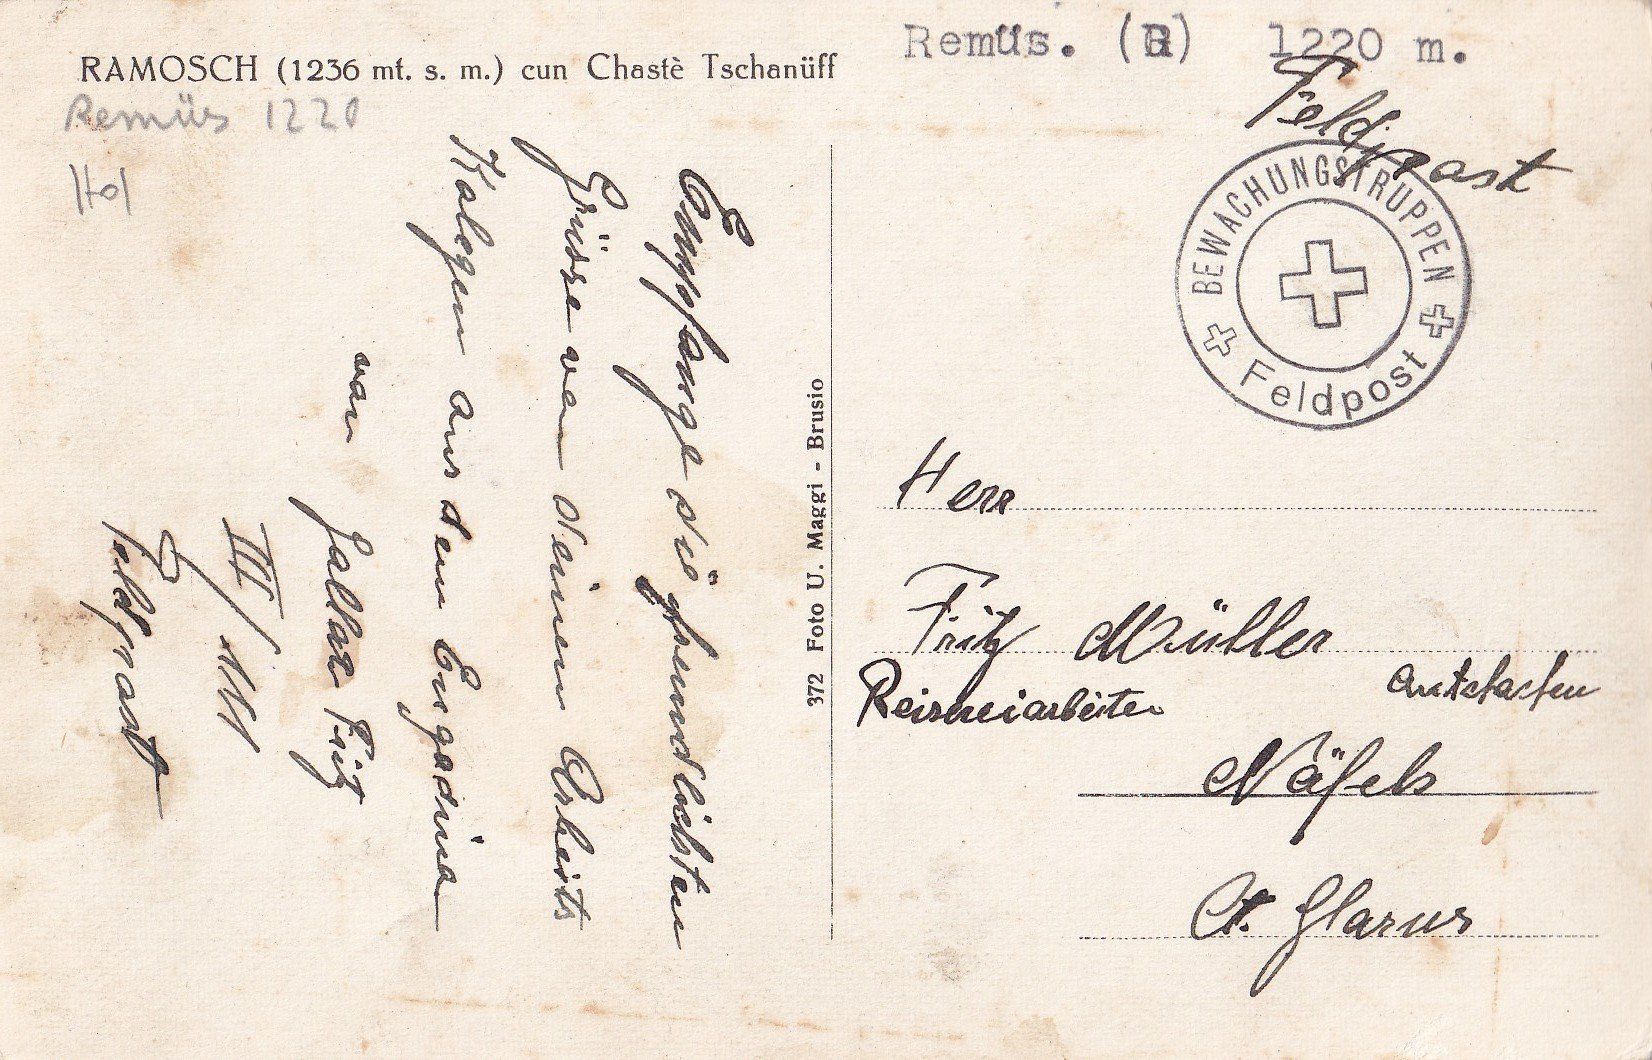 RAMOSCH (1236 mt. s. m.) cun Chastè Tschanüff
Remüs. (GR) 1220 m.
Remüs 1220
Feldpost
BEWACHUNGSTRUPPEN
Feldpost
Empfange die freundlichsten
Grüsse von deinem Arbeits
Kolegen aus dem Engadina
von
Fritz
III/111
Feldpost
372 Foto U. Maggi - Brusio
Herr
Fritz Müller
Näfels
Ct. Glarus